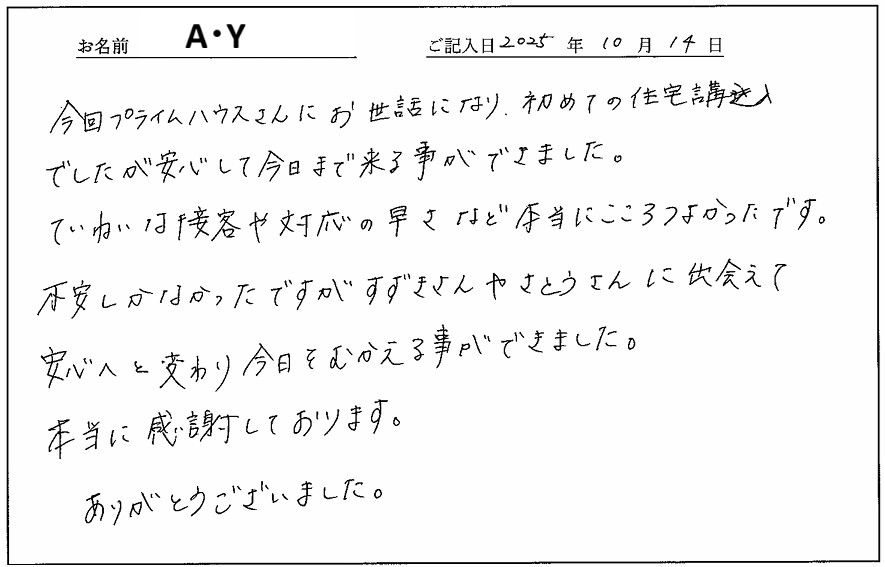 お名前 A・Y ご記入日 2025 年 10 月 14 日
今回プライムハウスさんにお世話になり、初めての住宅購入
でしたが安心して今日まで来る事ができました。
ていねいな接客や対応の早さなど本当にこころづよかったです。
不安しかなかったですがすずきさんやさとうさんに出会えて
安心へと変わり今日をむかえる事ができました。
本当に感謝しております。
ありがとうございました。